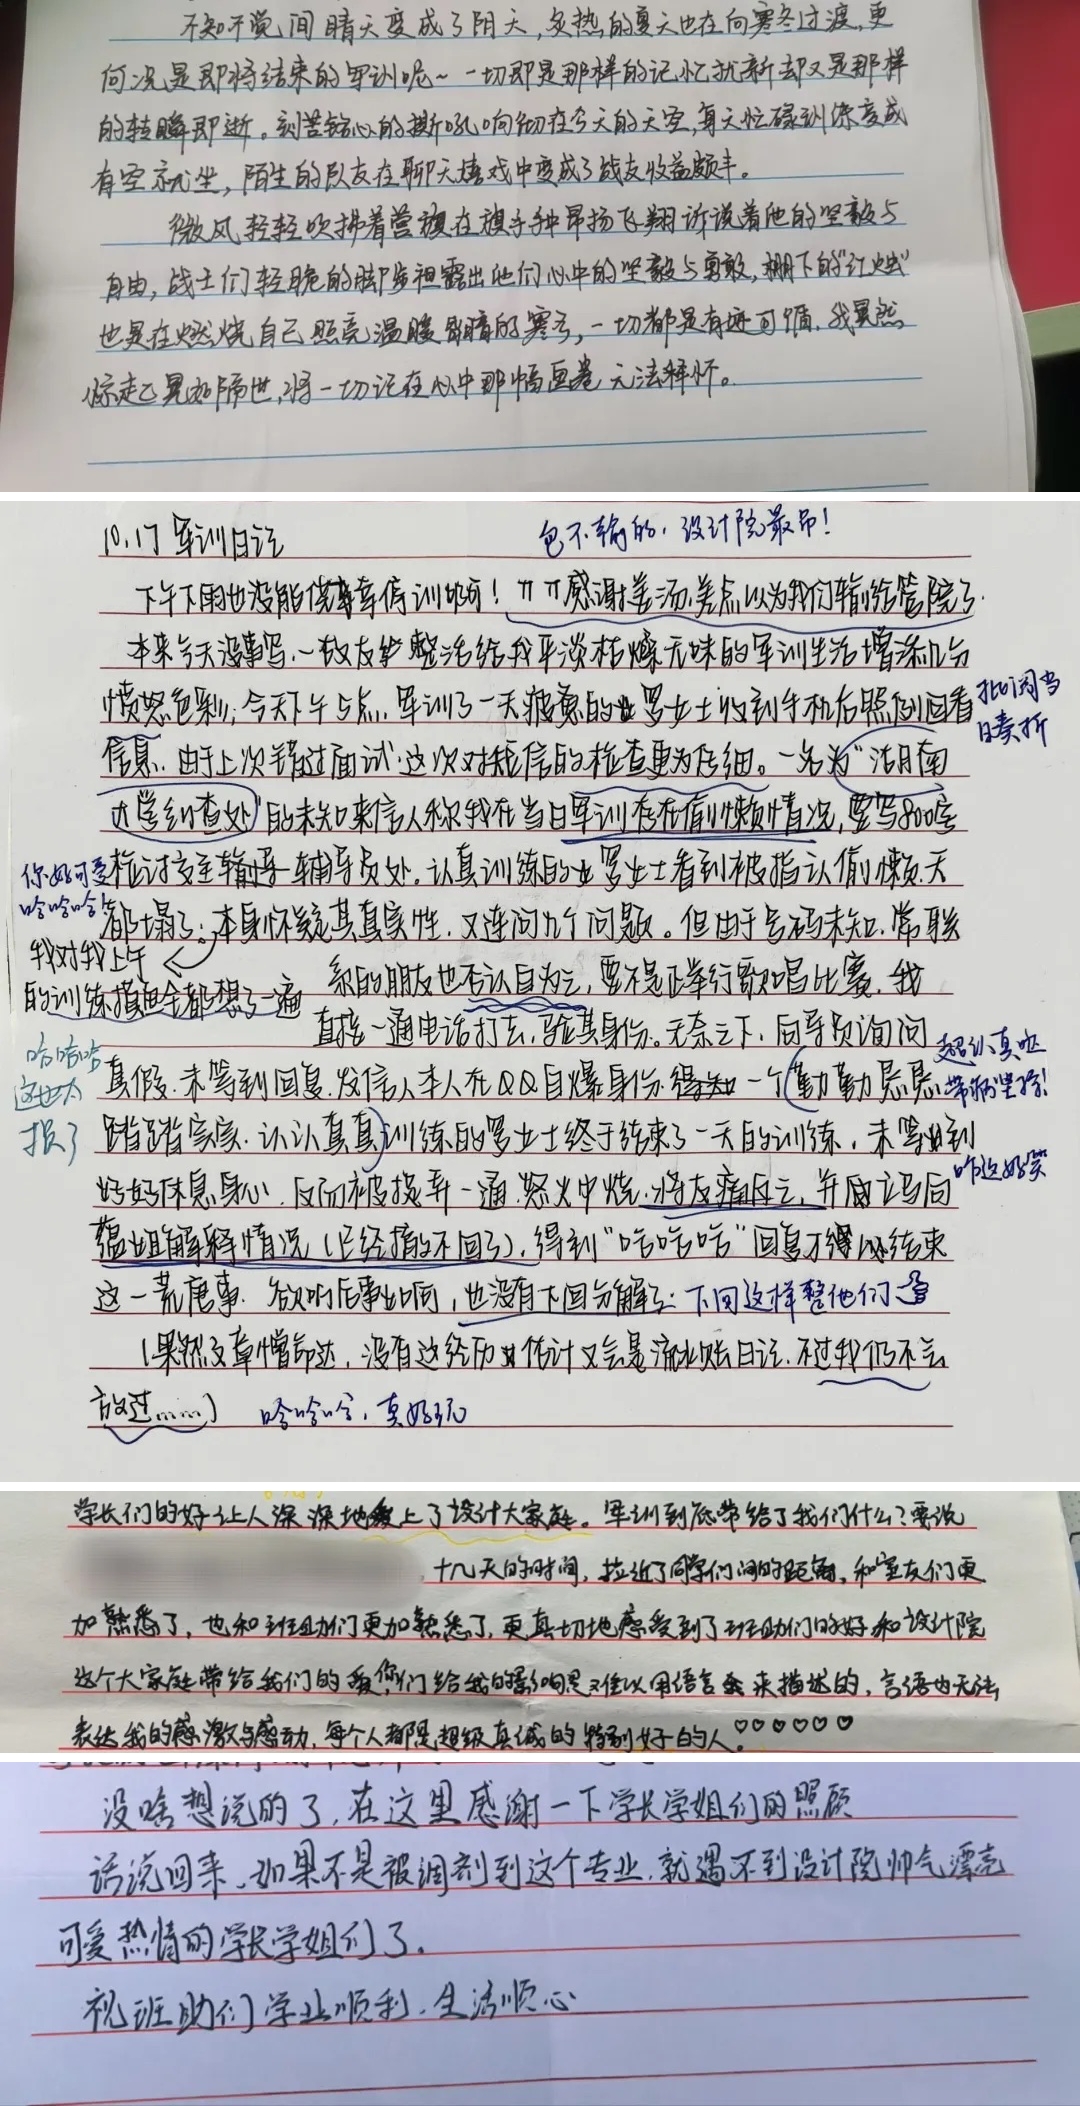 不知不觉间晴天变成了阴天,炙热的夏天也在向寒冬过渡,更
何况是即将结束的军训呢~一切即是那样的记忆犹新却又是那样
的转瞬即逝。刻苦铭心的撕吼响彻在今天的天空,每天忙碌训练变成
有空就坐,陌生的队友在聊天嬉戏中变成了战友收益颇丰。
微风轻轻吹拂着营旗在旗手种昂扬飞翔诉说着他的坚毅与
自由,战士们轻脆的脚步袒露出他们心中的坚毅与勇敢,棚下的"红烛"
也是在燃烧自己照亮温暖黯暗的寒冬,一切都是有迹可循,我晃然
惊起已晃如隔世,将一切记在心中那幅画卷无法释怀。
10.17 军训日记
包不输的,设计院最吊!
下午下雨也没能停训啊!感谢姜汤,差点以为我们输给管院了.
本来今天没事写,一故友整活给我平淡枯燥无味的军训生活增添几分
愤怒色彩;今天下午5点,军训了一天疲惫的罗女士收到手机后照例回看
批阅当
日奏折
信息.由于上次错过面试,这次对短信的检查更为仔细。一名为"济南
大学纠查处"的未知来信人称我在当日军训存在偷懒情况,要写800字
检讨交至辅导员处。认真训练的罗女士看到被指认偷懒,天
你好可爱
哈哈哈哈
都塌了;本身怀疑其真实性,又连问几个问题。但由于号码未知,常联
我对我上午
的训练摸鱼全都想了一遍
系的朋友也否认自为之,要不是正举行歌唱比赛,我
直接一通电话打去,验其身份。无奈之下,向导员询问
真假.未等到回复,发信人本人在QQ自爆身份.得知一个勤勤恳恳
超认真啦
带病坚持!
哈哈哈
这也太
损了
踏踏实实、认认真真训练的罗女士终于结束了一天的训练,未等到
好好休息身心,反而被捉弄一通.怒火中烧,将友痛斥之,并向
咋这好笑
学姐解释情况(已经撤不回了),得到"哈哈哈"回复才得以结束
这一荒唐事.欲听后事如何,也没有下回分解了:下回这样整他们
(果然文章憎命达,没有这经历估计又会是流水账日记.不过我仍不会
放过……)
哈哈哈,真好玩
学长们的好让人深深地爱上了设计大家庭。军训到底带给了我们什么?要说
十几天的时间,拉近了同学们间的距离,和室友们更
加熟悉了,也和班助们更加熟悉了,更真切地感受到了班助们的好和设计院
这个大家庭带给我们的爱,你们给我的影响是难以用语言来描述的,言语也无法
表达我的感激与感动,每个人都是超级真诚的特别好的人。♡♡♡♡♡♡
没啥想说的了,在这里感谢一下学长学姐们的照顾
话说回来、如果不是被调剂到这个专业,就遇不到设计院帅气漂亮
可爱热情的学长学姐们了.
祝班助们学业顺利.生活顺心